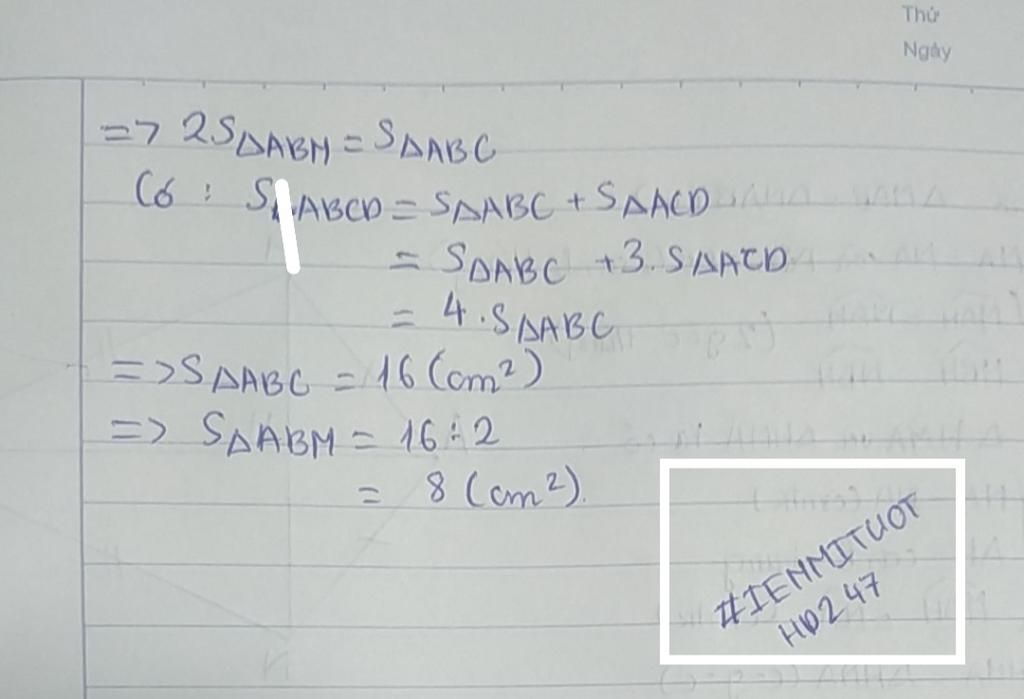 Thứ
Ngày
=> 2SΔABM = SΔABC
Có : SABCD = SΔABC + SΔACD
= SΔABC + 3. SΔACD
= 4 . SΔABC
=> SΔABC = 16 (cm²)
=> SΔABM = 16 : 2
= 8 (cm²).
#IENMITUOT
HD247